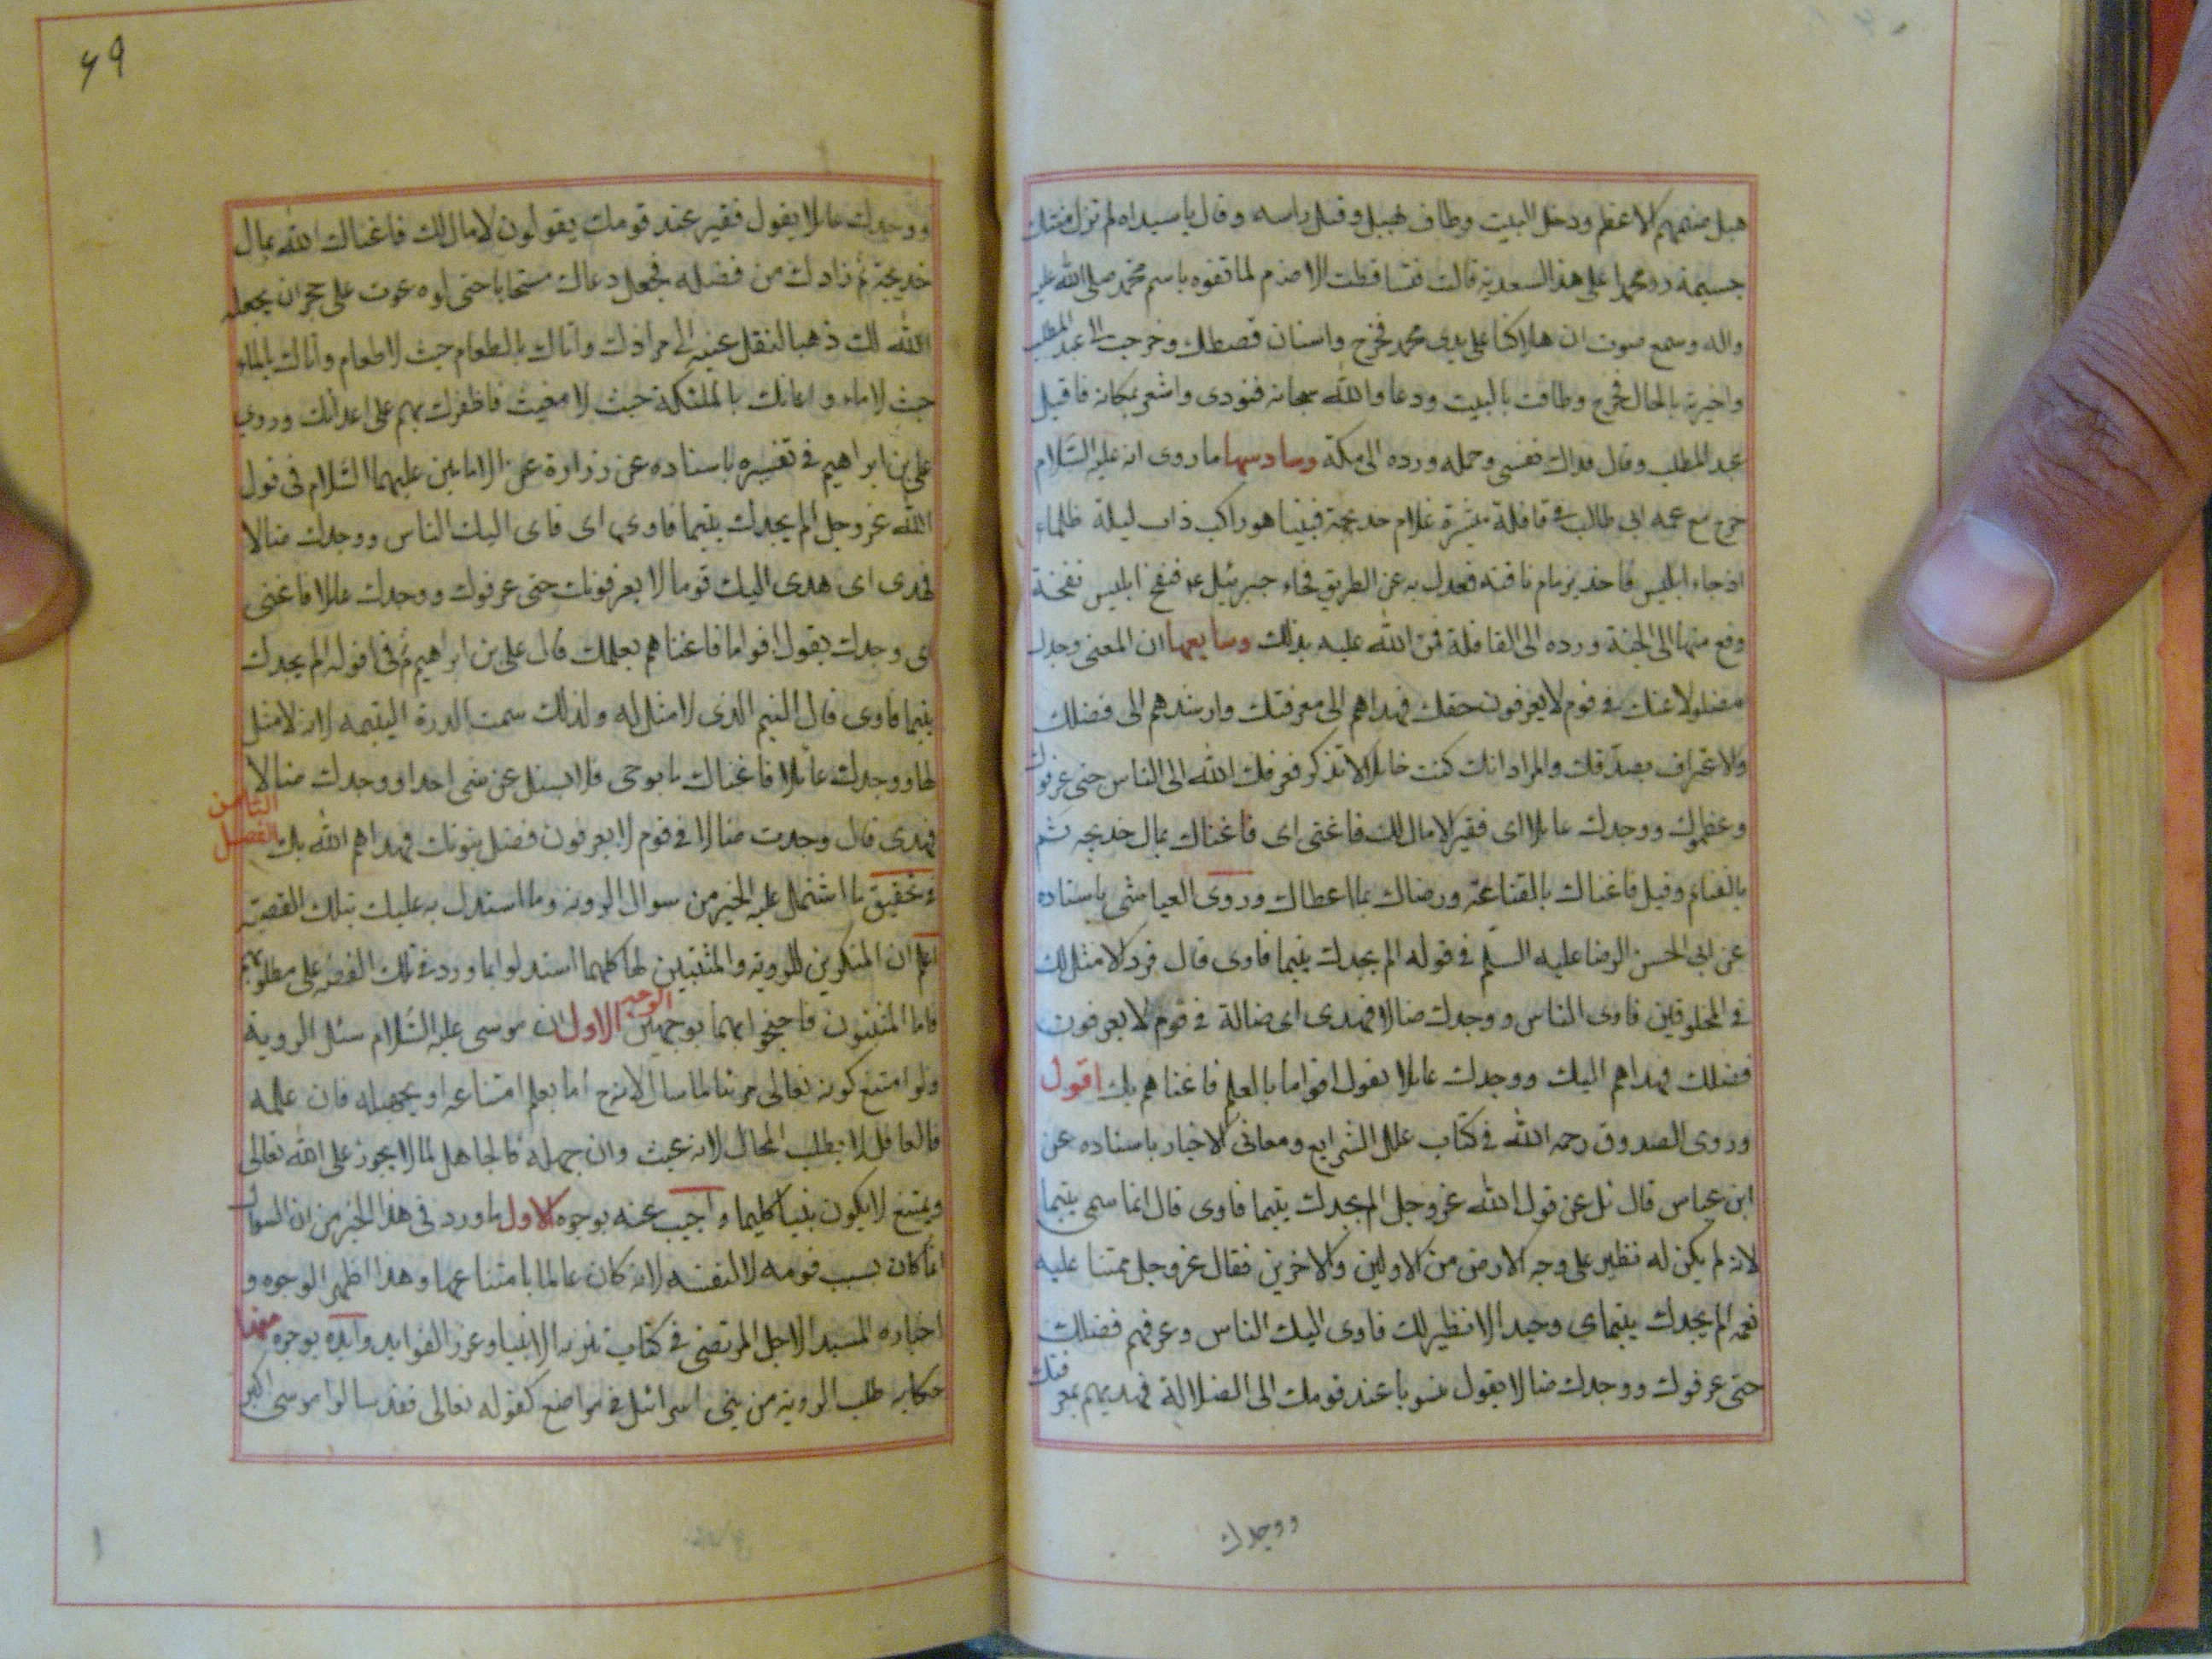 هبل صنمهم الاعظم ودخل البيت وطاف بهبل وقبل راسه وقال يا سيداه لم تزل منتك
جسيمة رد محمدا على هذا السعدية قالت فتساقطت الاصنام لما تفوه باسم محمد صلى الله عليه
واله وسمع صوت ان هلاكنا على يدي محمد فخرج واسنانه تصطك وخرجت الى عبد المطلب
واخبرته بالحال فخرج وطاف بالبيت ودعا الله سبحانه فنودى واشعر بمكانه فاقبل
عبد المطلب وقال فداك نفسى وحمله ورده الى مكة وسادسها ما روى انه عليه السلام
خرج مع عمه ابى طالب فى قافلة ميسرة غلام خديجة فبينا هو راكب ذات ليلة ظلماء
اذ جاء ابليس فاخذ بزمام ناقته فعدل به عن الطريق فجاء جبرئيل ع فنفخ ابليس نفخة
وقع منها الى الحبشة ورده الى القافلة فمن الله عليه بذلك وسابعها ان المعنى وجدك
مضلولا عنك فى قوم لا يعرفون حقك فهداهم الى معرفتك وارشدهم الى فضلك
والاعتراف بصدقك والمراد انك كنت خاملا لا تذكر فعرفك الله الى الناس حتى عرفوك
وعظموك ووجدك عائلا اى فقيرا لا مال لك فاغنى اى فاغناك بمال خديجه ثم
بالغنائم وقيل فاغناك بالقناعة ورضاك بما اعطاك وروى العياشى باسناده
عن ابى الحسن الرضا عليه السلم فى قوله الم يجدك يتيما فاوى قال فردا لا مثل لك
فى المخلوقين فاوى الناس ووجدك ضالا فهدى اى ضالة فى قوم لا يعرفون
فضلك فهداهم اليك ووجدك عائلا تعول اقواما بالعلم فاغناهم بك اقول
وروى الصدوق رحمه الله فى كتاب علل الشرايع ومعانى الاخبار باسناده عن
ابن عباس قال سئل عن قول الله عز وجل الم يجدك يتيما فاوى قال انما سمى يتيما
لانه لم يكن له نظير على وجه الارض من الاولين والاخرين فقال عز وجل ممتنا عليه
نعمه الم يجدك يتيما اى وحيدا لا نظير لك فاوى اليك الناس وعرفهم فضلك
حتى عرفوك ووجدك ضالا يقول منسوبا عند قومك الى الضلالة فهديهم بمعرفتك
ووجدك
٦٩
ووجدك عائلا يقول فقير عند قومك يقولون لا مال لك فاغناك الله بمال
خديجة ثم زادك من فضله فجعل دعاك مستجابا حتى لو دعوت على حجر ان يجعله
الله لك ذهبا لنقل عينه الى مرادك واتاك بالطعام حيث لا طعام واتاك بالماء
حيث لا ماء واعانك بالملئكة حيث لا مغيث فاظفرك بهم على اعدائك وروى
على بن ابراهيم فى تفسيره باسناده عن زرارة عن الامامين عليهما السلام فى قول
الله عز وجل الم يجدك يتيما فاوى اى فاى اليك الناس ووجدك ضالا
فهدى اى هدى اليك قوما لا يعرفونك حتى عرفوك ووجدك عائلا فاغنى
اى وجدك تعول اقواما فاغناهم بعلمك قال على بن ابراهيم ثم قال فى قوله الم يجدك
يتيما فاوى قال اليتيم الذى لا مثل له ولذلك سمت الدرة اليتيمه لانه لا مثل
لها ووجدك عائلا فاغناك بالوحى فلا تسئل عن شى احدا ووجدك ضالا
فهدى قال وجدك ضالا فى قوم لا يعرفون فضل نبوتك فهداهم الله بك الفصل الثامن
فى تحقيق ما اشتمل عليه الخبر من سوال الروية وما استدل به عليك بتلك القصة
اعلم ان المنكرين للروية والمثبتين لها كليهما استدلوا بما ورد فى تلك القصة على مطلوبهم
فاما المثبتون فاحتجوا بها بوجهين الوجه الاول ان موسى عليه السلام سئل الروية
ولو امتنع كونه تعالى مرئيا لما سال لانه ح اما يعلم امتناعه او يجهله فان علمه
فالعاقل لا يطلب المحال لانه عبث وان جهله فالجاهل لما لا يجوز على الله تعالى
ويمتنع لا يكون نبيا كليما واجيب عنه بوجوه الاول ما ورد فى هذا الخبر من ان السوال
انما كان بسبب قومه لا لنفسه لانه كان عالما بامتناعها وهذا اظهر الوجوه و
اختاره السيد الاجل المرتضى فى كتاب تنزيه الانبيا وغرر الفوايد وايده بوجوه منها
حكاية طلب الروية من بنى اسرائيل فى مواضع كقوله تعالى فقد سالوا موسى اكبر